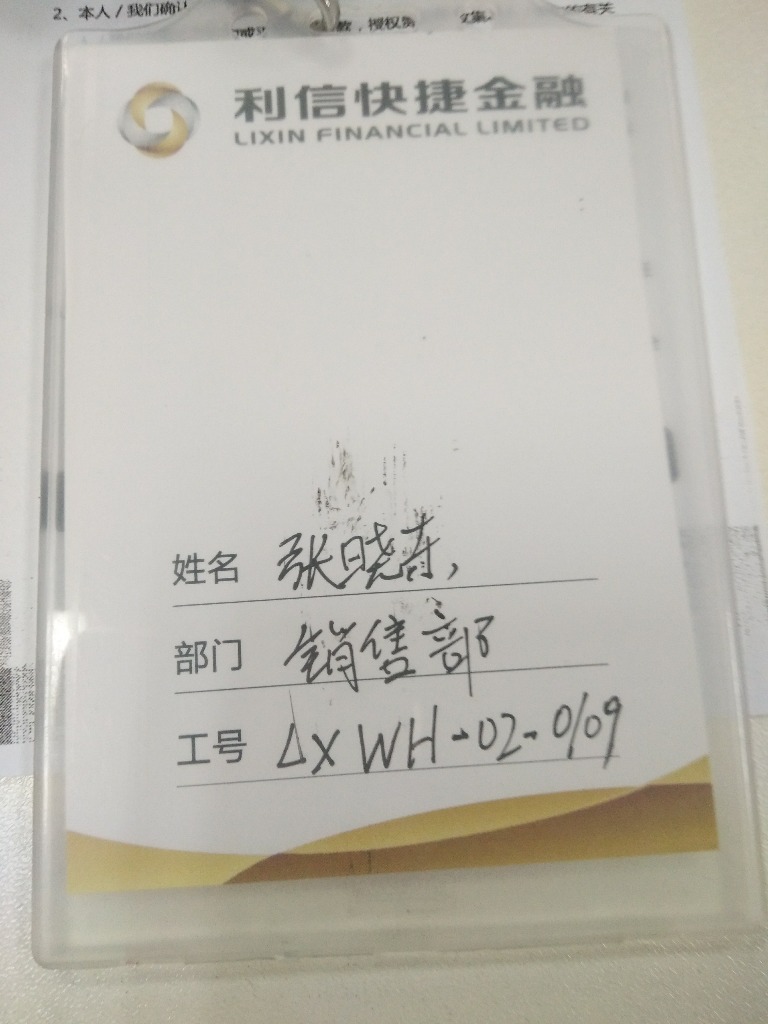 2、本人/我们确认
款，授权贵
有关
利信快捷金融
LIXIN FINANCIAL LIMITED
姓名 张晓东,
部门 销售部
工号 LXWH-02-0109